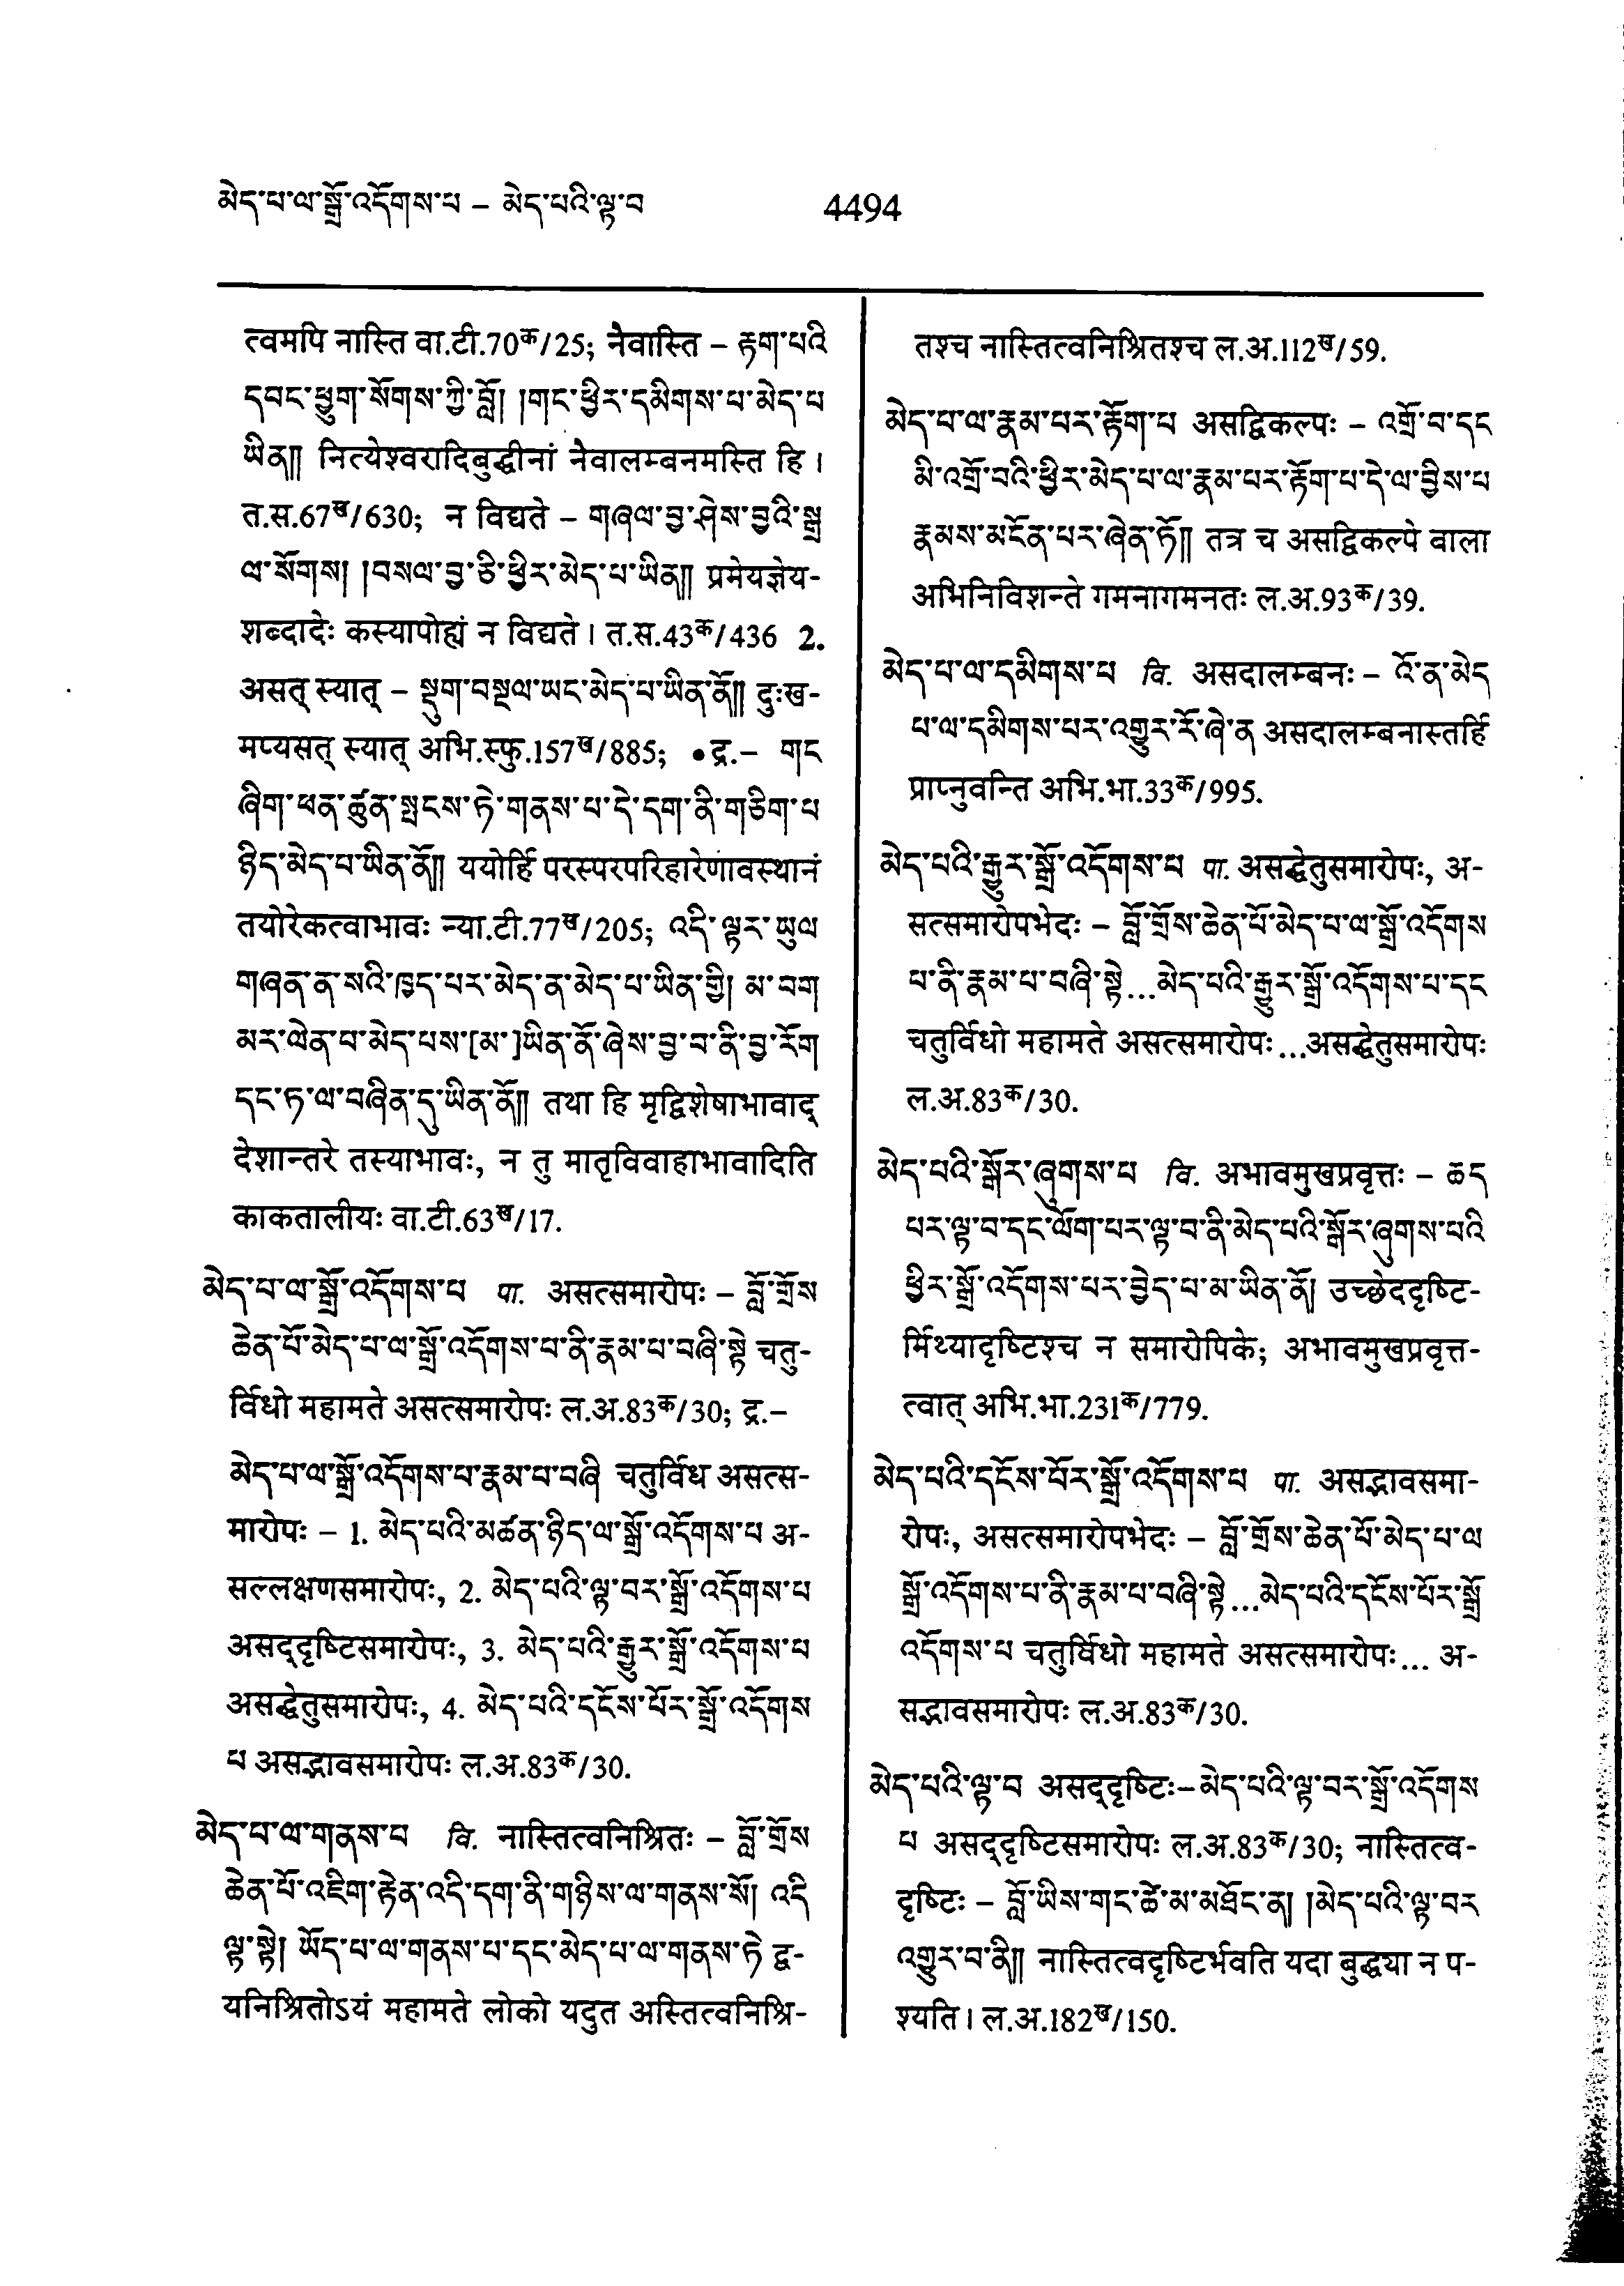 མེད་པ་ལ་སྒྲོ་འདོགས་པ – མེད་པའི་ལྟ་བ
4494
त्वमपि नास्ति वा.टी.70क/25; नैवास्ति – རྟག་པའི
དབང་ཕྱུག་སོགས་ཀྱི་བློ། །གང་ཕྱིར་དམིགས་པ་མེད་པ
ཡིན།། नित्येश्वरादिबुद्धीनां नैवालम्बनमस्ति हि ।
त.स.67ख/630; न विद्यते – གཞལ་བྱ་ཤེས་བྱའི་སྒྲ
ལ་སོགས། །བསལ་བྱ་ཅི་ཕྱིར་མེད་པ་ཡིན།། प्रमेयज्ञेय-
शब्दादेः कस्यापोह्यं न विद्यते । त.स.43क/436 2.
असत् स्यात् – སྡུག་བསྔལ་ཡང་མེད་པ་ཡིན་ནོ།། दुःख-
मप्यसत् स्यात् अभि.स्फु.157ख/885; •द्र.– གང
ཞིག་ཕན་ཚུན་སྤངས་ཏེ་གནས་པ་དེ་དག་ནི་གཅིག་པ
ཉིད་མེད་པ་ཡིན་ནོ།། ययोर्हि परस्परपरिहारेणावस्थानं
तयोरेकत्वाभावः न्या.टी.77ख/205; འདི་ལྟར་ཡུལ
གཞན་ན་སའི་ཁྱད་པར་མེད་ན་མེད་པ་ཡིན་གྱི། མ་བག
མར་ལེན་པ་མེད་པས་[མ་]ཡིན་ནོ་ཞེས་བྱ་བ་ནི་བྱ་རོག
དང་ཏ་ལ་བཞིན་དུ་ཡིན་ནོ།། तथा हि मृद्विशेषाभावाद्
देशान्तरे तस्याभावः, न तु मातृविवाहाभावादिति
काकतालीयः वा.टी.63ख/17.
མེད་པ་ལ་སྒྲོ་འདོགས་པ पा. असत्समारोपः – བློ་གྲོས
ཆེན་པོ་མེད་པ་ལ་སྒྲོ་འདོགས་པ་ནི་རྣམ་པ་བཞི་སྟེ चतु-
र्विधो महामते असत्समारोपः ल.अ.83क/30; द्र.–
མེད་པ་ལ་སྒྲོ་འདོགས་པ་རྣམ་པ་བཞི चतुर्विध असत्स-
मारोपः – 1. མེད་པའི་མཚན་ཉིད་ལ་སྒྲོ་འདོགས་པ अ-
सल्लक्षणसमारोपः, 2. མེད་པའི་ལྟ་བར་སྒྲོ་འདོགས་པ
असद्दृष्टिसमारोपः, 3. མེད་པའི་རྒྱུར་སྒྲོ་འདོགས་པ
असद्धेतुसमारोपः, 4. མེད་པའི་དངོས་པོར་སྒྲོ་འདོགས
པ असद्भावसमारोपः ल.अ.83क/30.
མེད་པ་ལ་གནས་པ वि. नास्तित्वनिश्रितः – བློ་གྲོས
ཆེན་པོ་འཇིག་རྟེན་འདི་དག་ནི་གཉིས་ལ་གནས་སོ། འདི
ལྟ་སྟེ། ཡོད་པ་ལ་གནས་པ་དང་མེད་པ་ལ་གནས་ཏེ द्व-
यनिश्रितोऽयं महामते लोको यदुत अस्तित्वनिश्रि-
तश्च नास्तित्वनिश्रितश्च ल.अ.112ख/59.
མེད་པ་ལ་རྣམ་པར་རྟོག་པ असद्विकल्पः – འགྲོ་བ་དང
མི་འགྲོ་བའི་ཕྱིར་མེད་པ་ལ་རྣམ་པར་རྟོག་པ་དེ་ལ་བྱིས་པ
རྣམས་མངོན་པར་ཞེན་ཏོ།། तत्र च असद्विकल्पे वाला
अभिनिविशन्ते गमनागमनतः ल.अ.93क/39.
མེད་པ་ལ་དམིགས་པ वि. असदालम्बनः – འོ་ན་མེད
པ་ལ་དམིགས་པར་འགྱུར་རོ་ཞེ་ན असदालम्बनास्तर्हि
प्राप्नुवन्ति अभि.भा.33क/995.
མེད་པའི་རྒྱུར་སྒྲོ་འདོགས་པ पा. असद्धेतुसमारोपः, अ-
सत्समारोपभेदः – བློ་གྲོས་ཆེན་པོ་མེད་པ་ལ་སྒྲོ་འདོགས
པ་ནི་རྣམ་པ་བཞི་སྟེ...མེད་པའི་རྒྱུར་སྒྲོ་འདོགས་པ་དང
चतुर्विधो महामते असत्समारोपः...असद्धेतुसमारोपः
ल.अ.83क/30.
མེད་པའི་སྒོར་ཞུགས་པ वि. अभावमुखप्रवृत्तः – ཆད
པར་ལྟ་བ་དང་ལོག་པར་ལྟ་བ་ནི་མེད་པའི་སྒོར་ཞུགས་པའི
ཕྱིར་སྒྲོ་འདོགས་པར་བྱེད་པ་མ་ཡིན་ནོ། उच्छेददृष्टि-
र्मिथ्यादृष्टिश्च न समारोपिके; अभावमुखप्रवृत्त-
त्वात् अभि.भा.231क/779.
མེད་པའི་དངོས་པོར་སྒྲོ་འདོགས་པ पा. असद्भावसमा-
रोपः, असत्समारोपभेदः – བློ་གྲོས་ཆེན་པོ་མེད་པ་ལ
སྒྲོ་འདོགས་པ་ནི་རྣམ་པ་བཞི་སྟེ...མེད་པའི་དངོས་པོར་སྒྲོ
འདོགས་པ चतुर्विधो महामते असत्समारोपः... अ-
सद्भावसमारोपः ल.अ.83क/30.
མེད་པའི་ལྟ་བ असद्दृष्टिः–མེད་པའི་ལྟ་བར་སྒྲོ་འདོགས
པ असद्दृष्टिसमारोपः ल.अ.83क/30; नास्तित्व-
दृष्टिः – བློ་ཡིས་གང་ཚེ་མ་མཐོང་ན། །མེད་པའི་ལྟ་བར
འགྱུར་བ་ནི།། नास्तित्वदृष्टिर्भवति यदा बुद्ध्या न प-
श्यति । ल.अ.182ख/150.